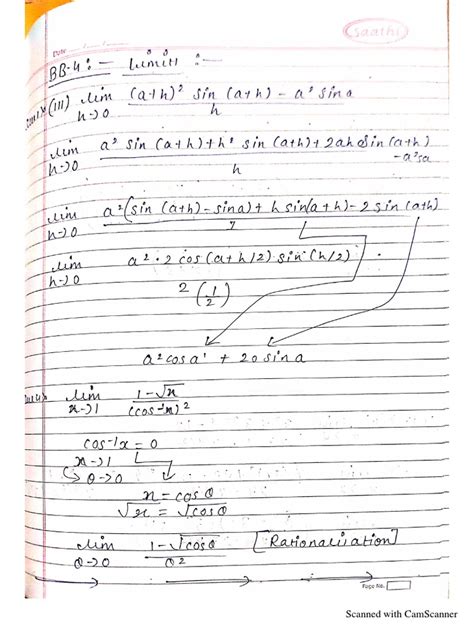 Saathi
BB-4 :- Limits :-
(III) lim h→0 (a+h)² sin (a+h) - a² sina / h
lim h→0 a² sin (a+h) + h² sin (a+h) + 2ah sin (a+h) - a²sa / h
lim h→0 a² (sin (a+h) - sina) + h sin(a+h) - 2 sin (a+h)
lim h→0 a² · 2 cos (a+h/2) sin (h/2) / 2 (1/2) ·
a² cos a + 2a sina
lim x→1 1-√x / (cos⁻¹x)²
cos⁻¹x = 0
x→1
θ→0
x = cos θ
√x = √cos θ
lim θ→0 1-√cosθ / θ² [Rationalisation]
Page No.
Scanned with CamScanner